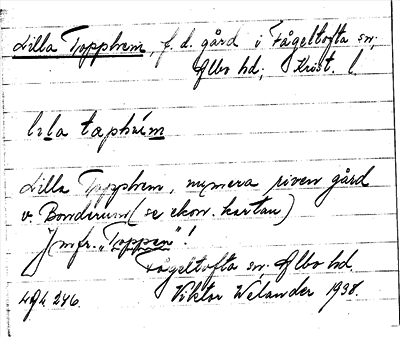 Lilla Topphem, f. d. gård i Fågeltofta sn;
Albo hd; Krist. l.
lıla taphém
Lilla Topphem, numera riven gård
v. Bondrum (se ekon. kartan)
Jmfr. „Toppen"!
Fågeltofta sn; Albo hd.
Viktor Welander 1938.